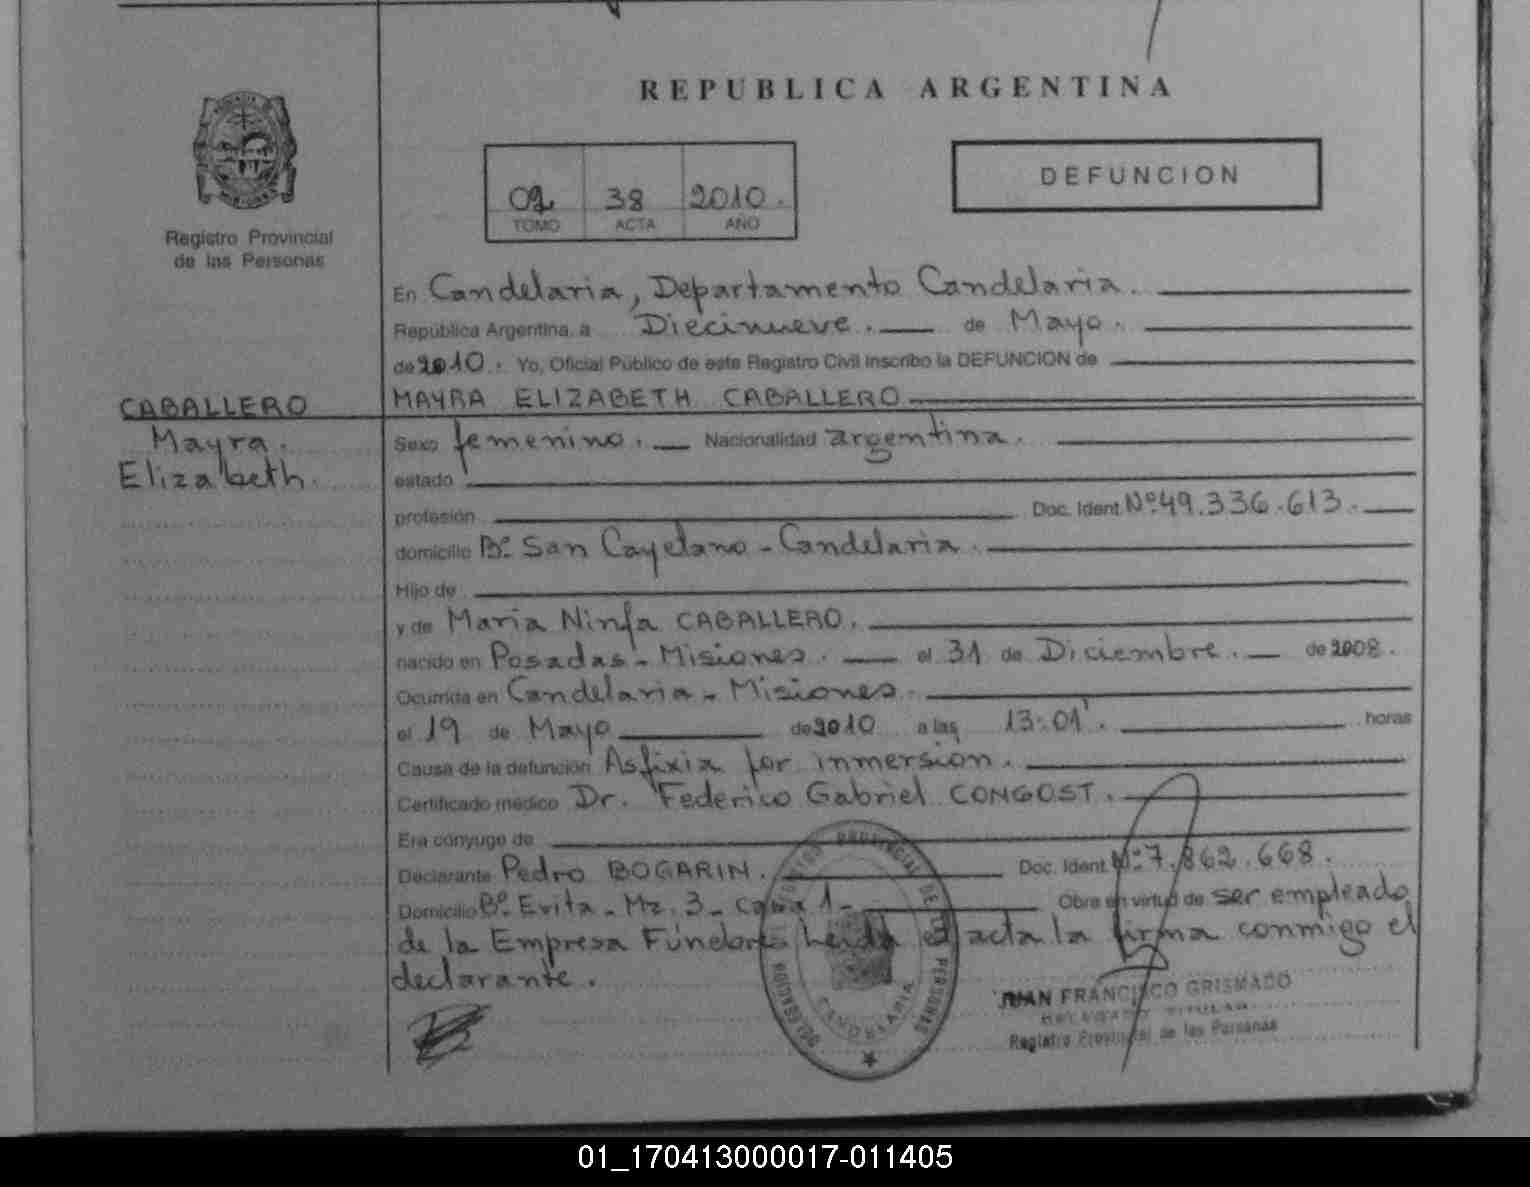 REPUBLICA ARGENTINA
DEFUNCION
38 2010.
TOMO ACTA AÑO
Registro Provincial
de las Personas
En Candelaria, Departamento Candelaria.
República Argentina, a Diecinueve. de Mayo.
de 2010. Yo, Oficial Público de este Registro Civil inscribo la DEFUNCION de
MAYRA ELIZABETH CABALLERO
CABALLERO
Mayra.
Elizabeth.
Sexo femenino. Nacionalidad argentina.
estado
profesión Doc. Ident. Nº49.336.613.
domicilio Bº San Cayetano - Candelaria.
Hijo de
y de Maria Ninfa CABALLERO.
nacido en Posadas - Misiones. el 31 de Diciembre. de 2008.
Ocurrida en Candelaria - Misiones.
el 19 de Mayo de 2010 a las 13:01'. horas
Causa de la defunción Asfixia por inmersion.
Certificado médico Dr. Federico Gabriel CONGOST.
Era cónyuge de
Declarante Pedro BOGARIN. Doc. Ident. Nº7.862.668.
Domicilio Bº Evita - Mz. 3 - Casa 1 - Obra en virtud de ser empleado
de la Empresa Fúnebre. Leida el acta la firma conmigo el
declarante.
DELEGACION REGISTRO PROVINCIAL DE LAS PERSONAS
CANDELARIA
JUAN FRANCISCO GRISMADO
DELEGADO TITULAR
Registro Provincial de las Personas
01_170413000017-011405